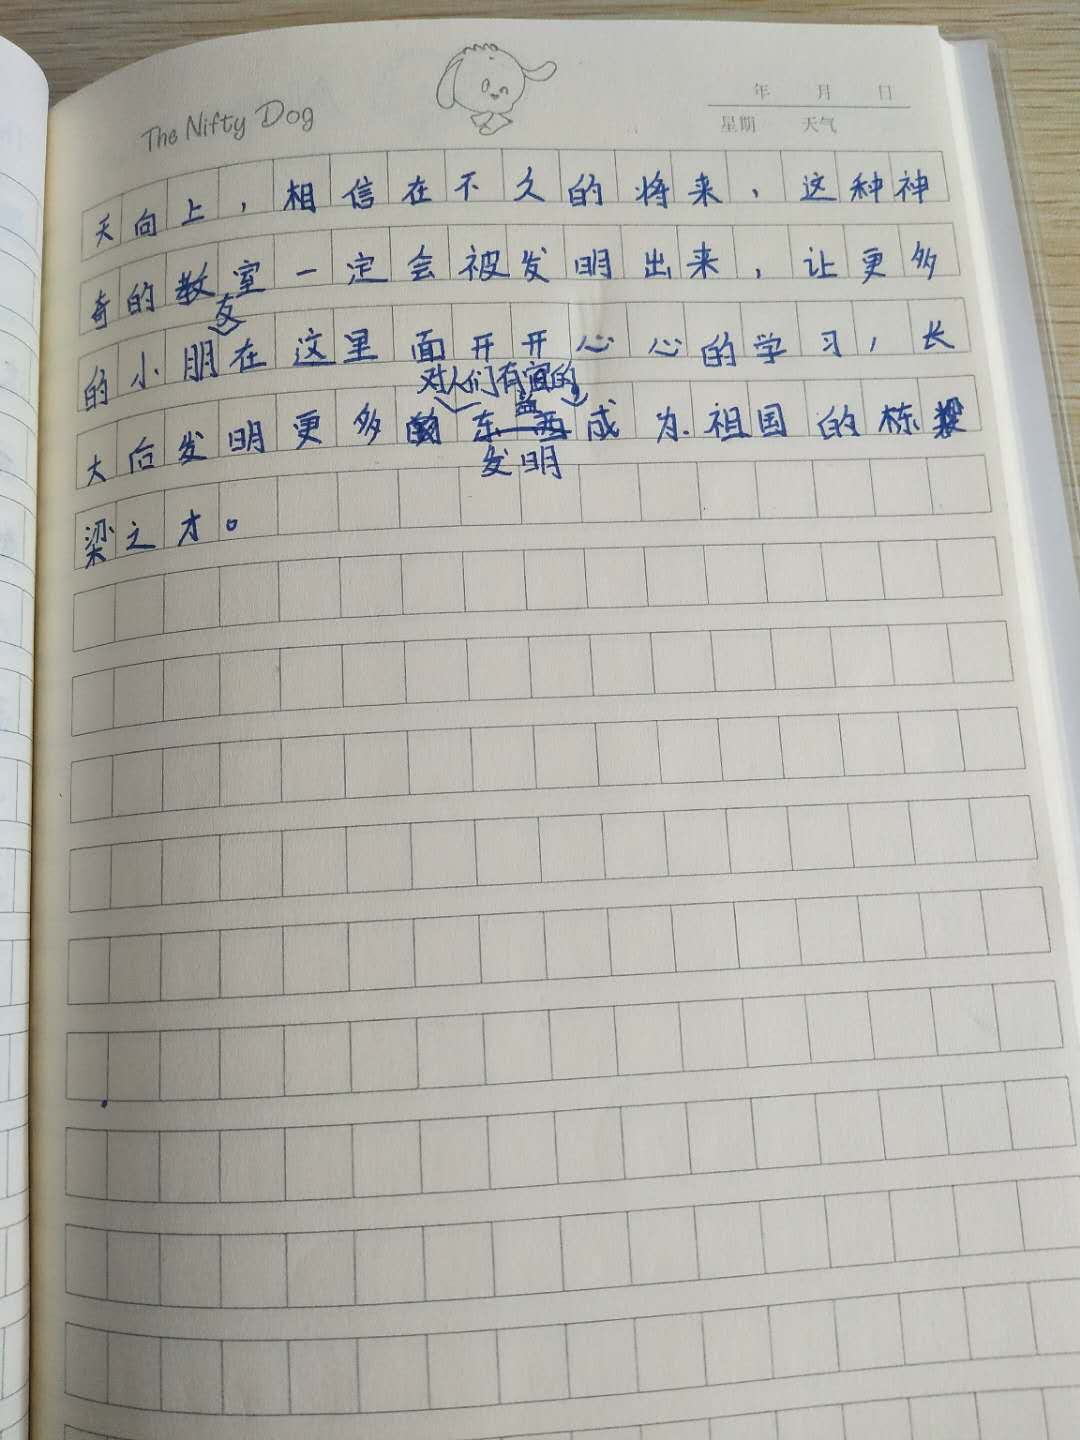 The Nifty Dog
年 月 日
星期 天气
天向上，相信在不久的将来，这种神
奇的教室一定会被发明出来，让更多
友
的小朋在这里面开开心心的学习，长
对人们有益的
大后发明更多东西成为祖国的栋
发明
梁之才。